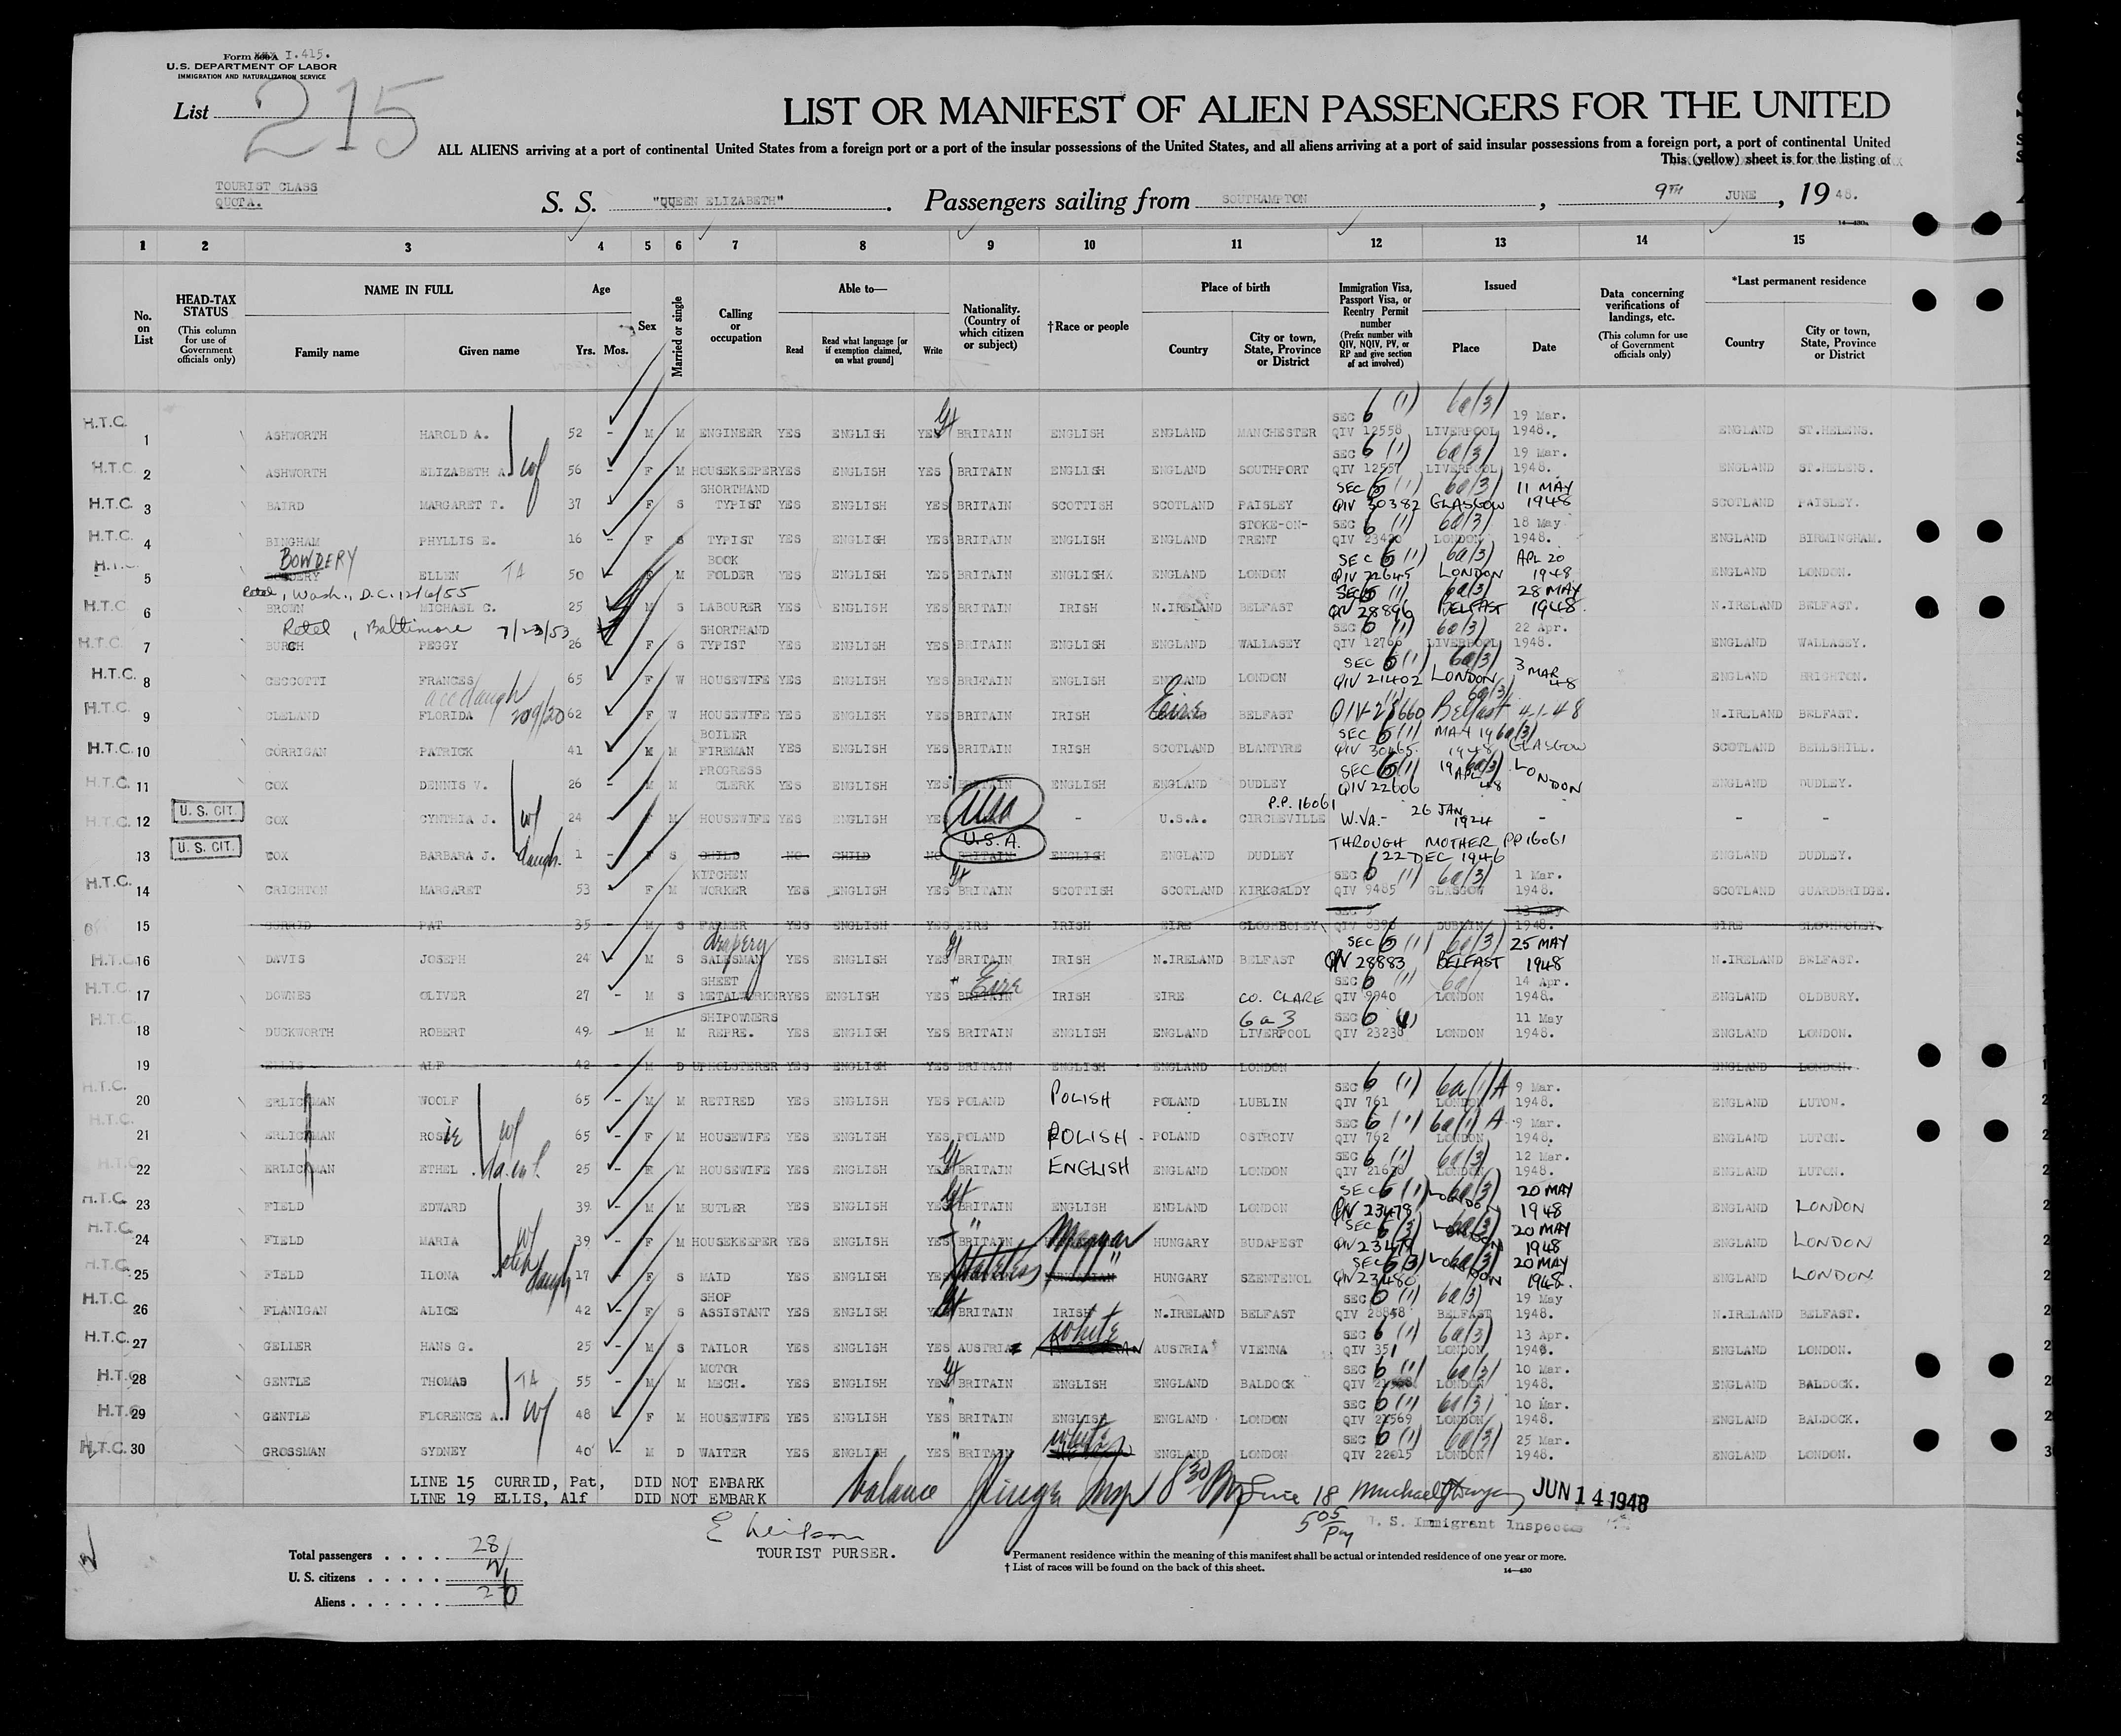 Form I.415.
U.S. DEPARTMENT OF LABOR
IMMIGRATION AND NATURALIZATION SERVICE
List 215
LIST OR MANIFEST OF ALIEN PASSENGERS FOR THE UNITED
ALL ALIENS arriving at a port of continental United States from a foreign port or a port of the insular possessions of the United States, and all aliens arriving at a port of said insular possessions from a foreign port, a port of continental United
This (yellow) sheet is for the listing of
TOURIST CLASS
QUOTA.
S. S. "QUEEN ELIZABETH". Passengers sailing from SOUTHAMPTON, 9TH JUNE, 1948.
14—430a
1 2 3 4 5 6 7 8 9 10 11 12 13 14 15
No. on List
HEAD-TAX STATUS
(This column for use of Government officials only)
NAME IN FULL
Family name Given name
Age
Yrs. Mos.
Sex
Married or single
Calling or occupation
Able to—
Read
Read what language [or if exemption claimed, on what ground]
Write
Nationality. (Country of which citizen or subject)
†Race or people
Place of birth
Country
City or town, State, Province or District
Immigration Visa, Passport Visa, or Reentry Permit number
(Prefix number with QIV, NQIV, PV, or RP and give section of act involved)
Issued
Place Date
Data concerning verifications of landings, etc.
(This column for use of Government officials only)
*Last permanent residence
Country
City or town, State, Province or District
H.T.C. 1 ASHWORTH HAROLD A. 52 - M M ENGINEER YES ENGLISH YES BRITAIN ENGLISH ENGLAND MANCHESTER SEC 6 (1) QIV 12558 6a(3) LIVERPOOL 19 Mar. 1948. ENGLAND ST.HELENS.
H.T.C. 2 ASHWORTH ELIZABETH A. wf 56 - F M HOUSEKEEPER YES ENGLISH YES BRITAIN ENGLISH ENGLAND SOUTHPORT SEC 6 (1) QIV 12557 6a(3) LIVERPOOL 19 Mar. 1948. ENGLAND ST.HELENS.
H.T.C. 3 BAIRD MARGARET T. 37 F S SHORTHAND TYPIST YES ENGLISH YES BRITAIN SCOTTISH SCOTLAND PAISLEY SEC 6 (1) QIV 30382 6a(3) GLASGOW 11 MAY 1948 SCOTLAND PAISLEY.
H.T.C. 4 BINGHAM PHYLLIS E. 16 - F S TYPIST YES ENGLISH YES BRITAIN ENGLISH ENGLAND STOKE-ON-TRENT SEC 6 (1) QIV 23420 6a(3) LONDON 18 May 1948. ENGLAND BIRMINGHAM.
H.T.C. 5 BOWDERY ELLEN TA 50 F M BOOK FOLDER YES ENGLISH YES BRITAIN ENGLISH ENGLAND LONDON SEC 6 (1) QIV 22645 6a(3) LONDON APL 20 1948 ENGLAND LONDON.
Retel, Wash., D.C. 12/6/55
H.T.C. 6 BROWN MICHAEL C. 25 M S LABOURER YES ENGLISH YES BRITAIN IRISH N.IRELAND BELFAST SEC 6 (1) QIV 28896 6a(3) BELFAST 28 MAY 1948. N.IRELAND BELFAST.
Retel, Baltimore 7/23/53
H.T.C. 7 BURCH PEGGY 26 F S SHORTHAND TYPIST YES ENGLISH YES BRITAIN ENGLISH ENGLAND WALLASEY SEC 6 (1) QIV 12766 6a(3) LIVERPOOL 22 Apr. 1948. ENGLAND WALLASEY.
H.T.C. 8 CECCOTTI FRANCES 65 F W HOUSEWIFE YES ENGLISH YES BRITAIN ENGLISH ENGLAND LONDON SEC 6 (1) QIV 21402 6a(3) LONDON 3 MAR 48 ENGLAND BRIGHTON.
acc daugh
H.T.C. 9 CLELAND FLORIDA 62 F W HOUSEWIFE YES ENGLISH YES BRITAIN IRISH Eire BELFAST QIV-28660 6a(3) Belfast 4-1-48 N.IRELAND BELFAST.
H.T.C. 10 CORRIGAN PATRICK 41 M M BOILER FIREMAN YES ENGLISH YES BRITAIN IRISH SCOTLAND BLANTYRE SEC 6 (1) QIV 30465. MAY 19 1948 6a(3) GLASGOW SCOTLAND BELLSHILL.
H.T.C. 11 COX DENNIS V. 26 - M M PROGRESS CLERK YES ENGLISH YES BRITAIN ENGLISH ENGLAND DUDLEY SEC 6 (1) QIV 22606 19 APL 48 6a(3) LONDON ENGLAND DUDLEY.
H.T.C. U. S. CIT. 12 COX CYNTHIA J. wf 24 - M HOUSEWIFE YES ENGLISH YES USA - U.S.A. CIRCLEVILLE P.P. 16061 W.VA.- 26 JAN 1924 - - -
U. S. CIT. 13 COX BARBARA J. daugh. 1 - F S CHILD NO CHILD NO BRITAIN U.S.A. ENGLISH ENGLAND DUDLEY THROUGH MOTHER PP16061 22 DEC 1946 ENGLAND DUDLEY.
H.T.C. 14 CRICHTON MARGARET 53 F M KITCHEN WORKER YES ENGLISH YES BRITAIN SCOTTISH SCOTLAND KIRKCALDY SEC 6 (1) QIV 9485 6a(3) GLASGOW 1 Mar. 1948. SCOTLAND GUARDBRIDGE.
15 CURRID PAT 35 M S FARMER YES ENGLISH YES EIRE IRISH EIRE SEC 5 QIV 8396 DUBLIN 13 May 1948. EIRE
H.T.C. 16 DAVIS JOSEPH 24 M S drapery SALESMAN YES ENGLISH YES BRITAIN IRISH N.IRELAND BELFAST SEC 6 (1) QIV 28883 6a(3) BELFAST 25 MAY 1948 N.IRELAND BELFAST.
H.T.C. 17 DOWNES OLIVER 27 - M S SHEET METALWORKER YES ENGLISH YES BRITAIN Eire IRISH EIRE CO. CLARE SEC 6 (1) QIV 9940 6a LONDON 14 Apr. 1948. ENGLAND OLDBURY.
H.T.C. 18 DUCKWORTH ROBERT 49 M M SHIPOWNERS REPRE. YES ENGLISH YES BRITAIN ENGLISH ENGLAND 6a3 LIVERPOOL SEC 6 (1) QIV 23238 LONDON 11 May 1948. ENGLAND LONDON.
19 ELLIS ALF 42 M D UPHOLSTERER YES ENGLISH YES BRITAIN ENGLISH ENGLAND LONDON ENGLAND LONDON.
H.T.C. 20 ERLICHMAN WOOLF 65 - M M RETIRED YES ENGLISH YES POLAND POLISH POLAND LUBLIN SEC 6 (1) QIV 761 6a(1)A LONDON 9 Mar. 1948. ENGLAND LUTON.
H.T.C. 21 ERLICHMAN ROSIE wf 65 - F M HOUSEWIFE YES ENGLISH YES POLAND POLISH POLAND OSTROIV SEC 6 (1) QIV 762 6a(1)A LONDON 9 Mar. 1948. ENGLAND LUTON.
H.T.C. 22 ERLICHMAN ETHEL 25 - F M HOUSEWIFE YES ENGLISH YES BRITAIN ENGLISH ENGLAND LONDON SEC 6 (1) QIV 6a(3) LONDON 12 Mar. 1948. ENGLAND LUTON.
H.T.C. 23 FIELD EDWARD 39 - M M BUTLER YES ENGLISH YES BRITAIN ENGLISH ENGLAND LONDON SEC 6 (1) QIV 23478 LONDON 6a(3) 20 MAY 1948 ENGLAND LONDON
H.T.C. 24 FIELD MARIA wf 39 - F M HOUSEKEEPER YES ENGLISH YES BRITAIN Magyar HUNGARY BUDAPEST SEC 6 (3) QIV 23479 LONDON 6a(3) 20 MAY 1948 ENGLAND LONDON
H.T.C. 25 FIELD ILONA step daugh 17 - F S MAID YES ENGLISH YES Stateless " HUNGARY SZENTENDL SEC 6 (3) QIV 23480 LONDON 6a(3) 20 MAY 1948. ENGLAND LONDON
H.T.C. 26 FLANIGAN ALICE 42 - F S SHOP ASSISTANT YES ENGLISH YES BRITAIN IRISH N.IRELAND BELFAST SEC 6 (1) QIV 28848 6a(3) BELFAST 19 May 1948. N.IRELAND BELFAST.
H.T.C. 27 GELLER HANS G. 25 - M S TAILOR YES ENGLISH YES AUSTRIA White AUSTRIA VIENNA SEC 6 (1) QIV 351 6a(3) LONDON 13 Apr. 1948. ENGLAND LONDON.
H.T.C. 28 GENTLE THOMAS TA 55 - M M MOTOR MECH. YES ENGLISH YES BRITAIN ENGLISH ENGLAND BALDOCK SEC 6 (1) QIV 6a(3) LONDON 10 Mar. 1948. ENGLAND BALDOCK.
H.T.C. 29 GENTLE FLORENCE A. wf 48 - F M HOUSEWIFE YES ENGLISH YES " BRITAIN ENGLISH ENGLAND LONDON 6 (1) QIV 21569 6a(3) LONDON 10 Mar. 1948. ENGLAND BALDOCK.
H.T.C. 30 GROSSMAN SYDNEY 40 - M D WAITER YES ENGLISH YES " BRITAIN white ENGLAND LONDON SEC 6 (1) QIV 22015 6a(3) LONDON 25 Mar. 1948. ENGLAND LONDON.
LINE 15 CURRID, Pat, DID NOT EMBARK
LINE 19 ELLIS, Alf DID NOT EMBARK
balance Insp 8 30 Pm Line 18 JUN 14 1948
5 05 Pm U. S. Immigrant Inspector
E Neilson
TOURIST PURSER.
Total passengers . . . . 28
U. S. citizens . . . . . 2
Aliens . . . . . . 26
* Permanent residence within the meaning of this manifest shall be actual or intended residence of one year or more.
† List of races will be found on the back of this sheet.
14—430